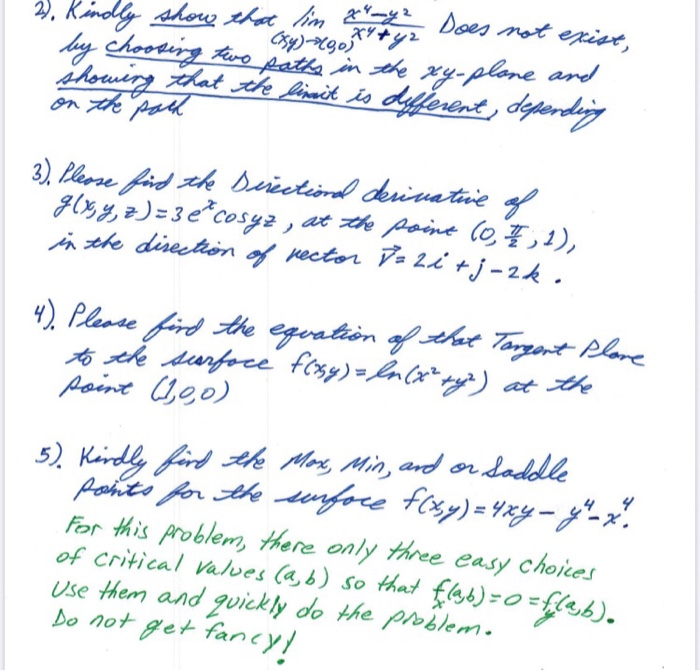 2). Kindly show that lim x⁴-y² / x⁴+y² Does not exist,
(x,y)→(0,0)
by choosing two paths in the xy-plane and
showing that the limit is different, depending
on the path
3). Please find the Directional derivative of
g(x,y,z)=3eˣcosyz, at the point (0, π/2, 1),
in the direction of vector v⃗=2i+j-2k.
4). Please find the equation of that Tangent Plane
to the surface f(x,y)=ln(x²+y²) at the
point (1,0,0)
5). Kindly find the Max, Min, and or Saddle
Points for the surface f(x,y)=4xy-y⁴-x⁴.
For this problem, there only three easy choices
of critical values (a,b) so that fₓ(a,b)=0=f_y(a,b).
Use them and quickly do the problem.
Do not get fancy!